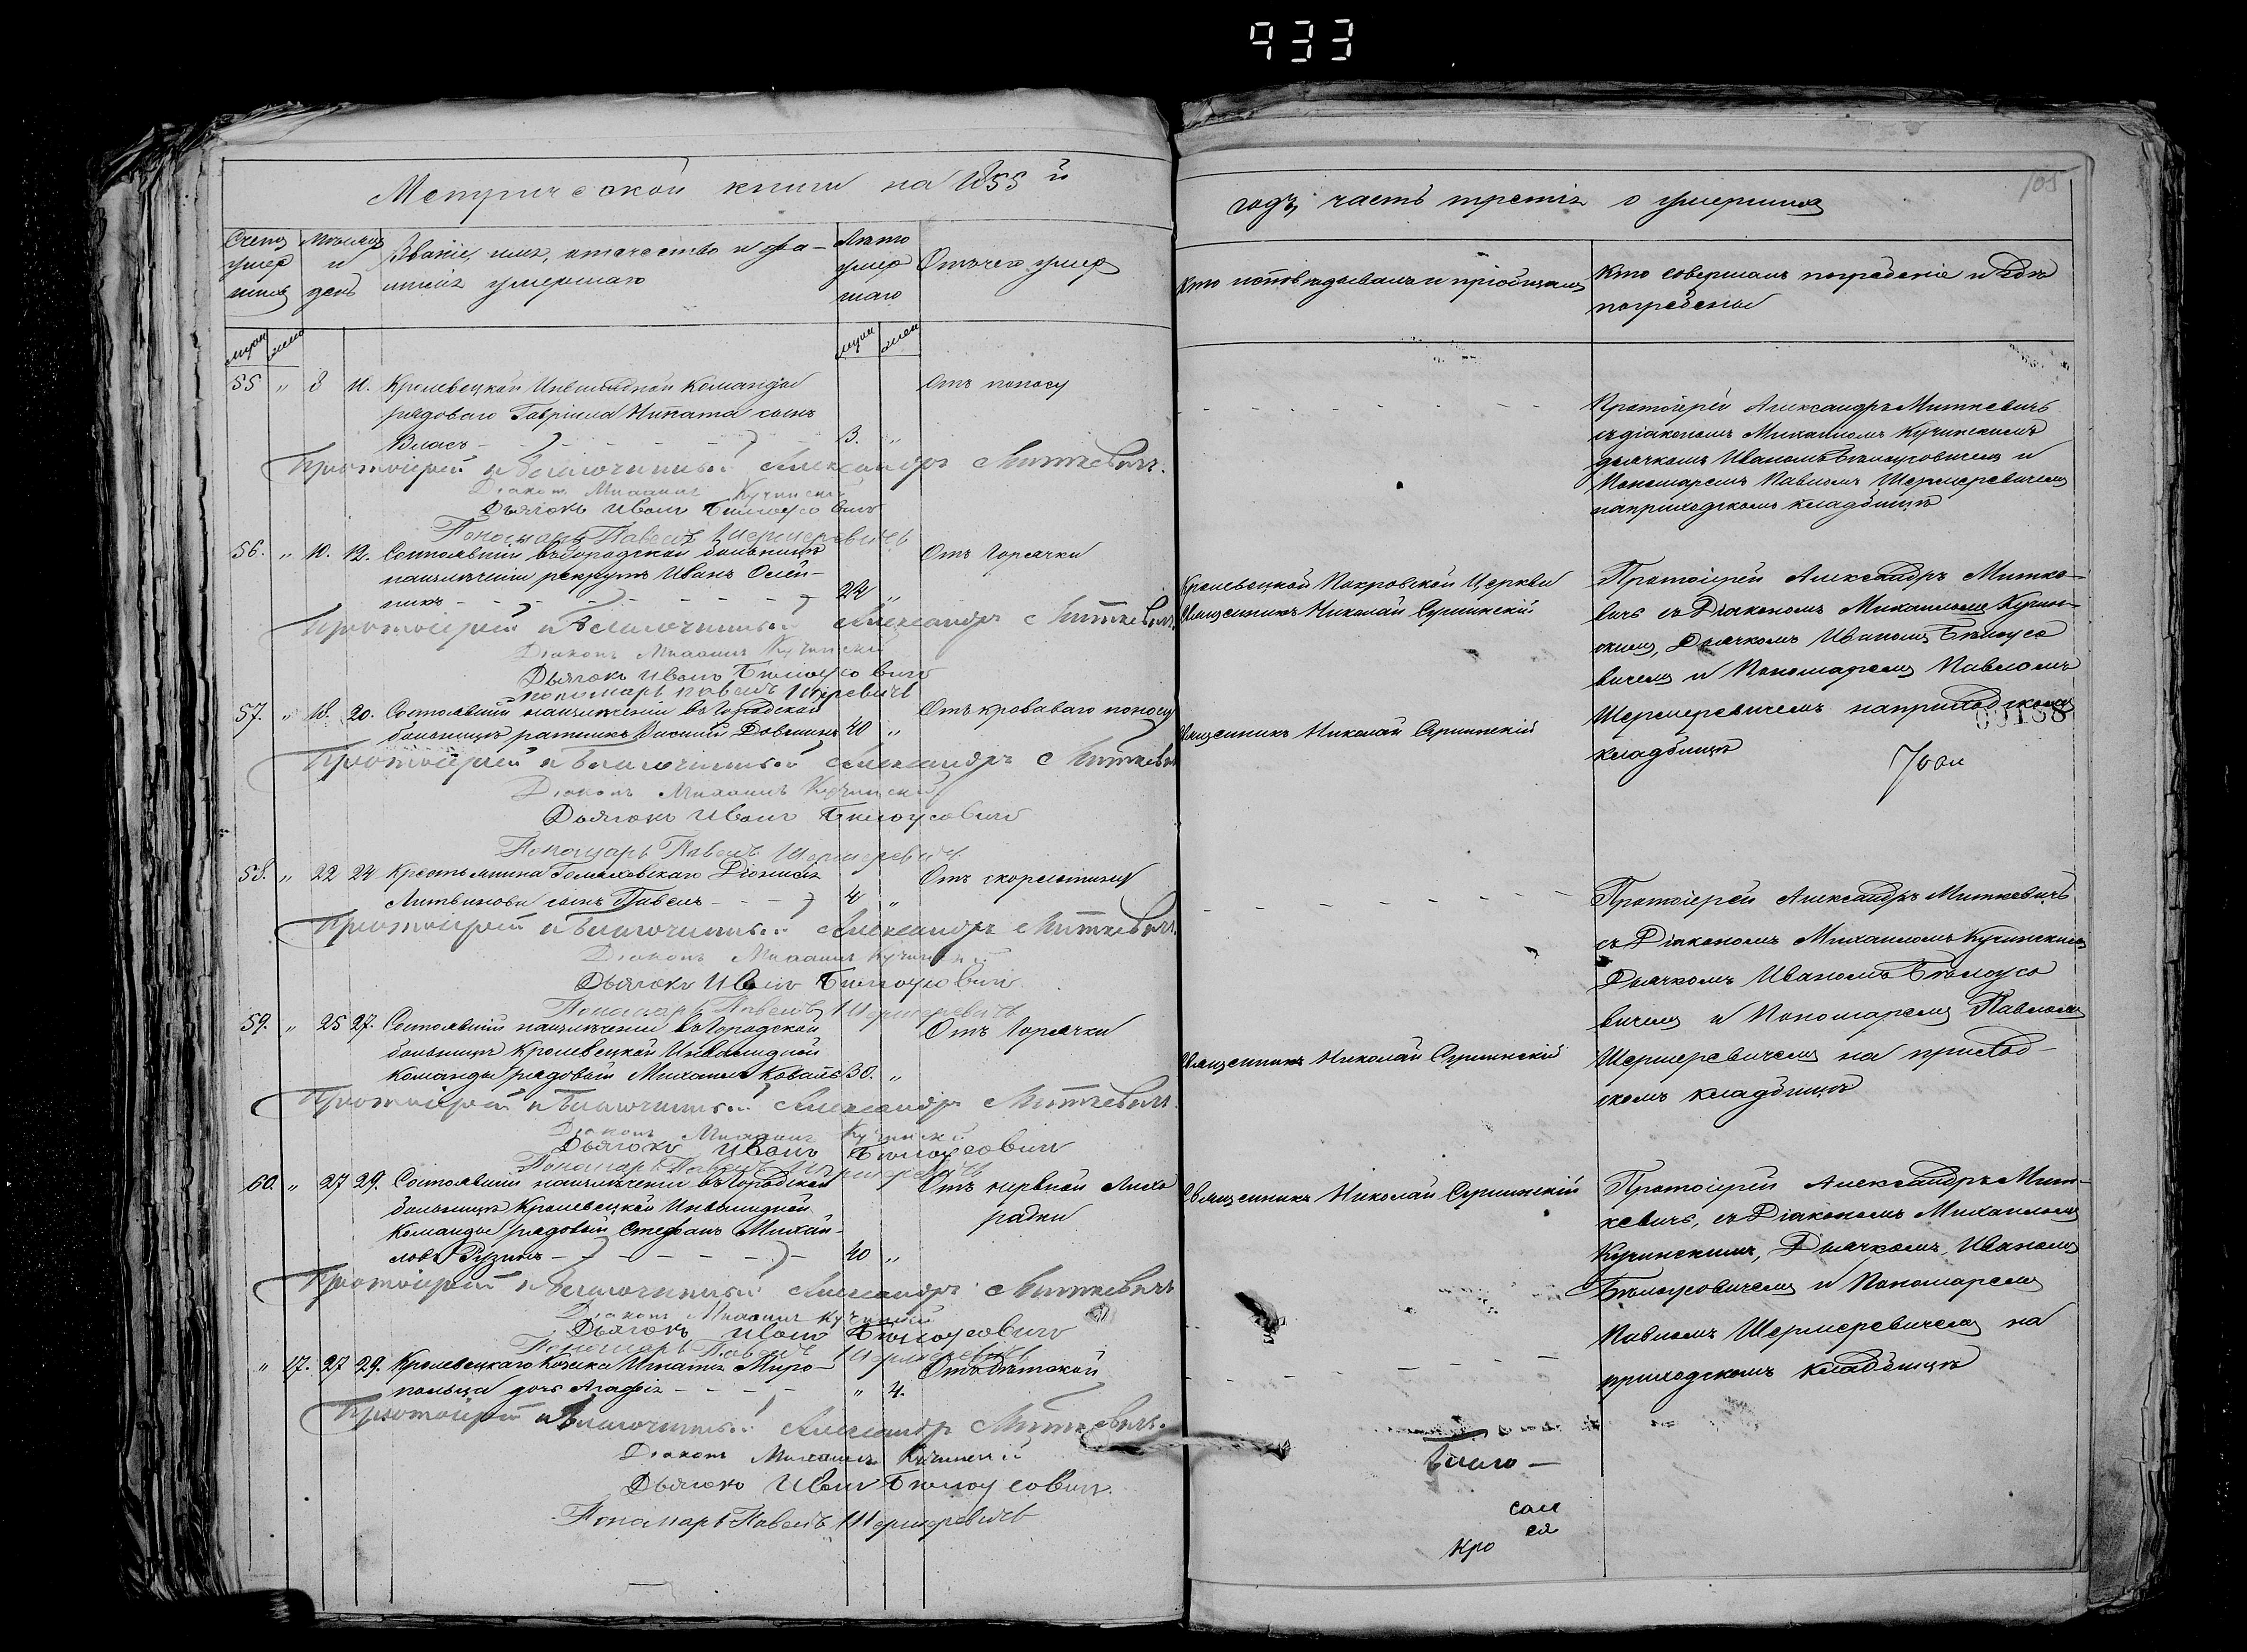 933
Метрической книги на 1855й
годъ, часть третія о умершихъ
105
Счетъ умер шихъ
Мѣсяцъ и день
Званіе, имя, отчество и фа-
милія умершаго
Лѣто умер шаго
Отъ чего умеръ
Кто исповѣдывалъ и пріобщалъ
Кто совершалъ погребеніе и гдѣ
погребены
муж жен
муж жен
55 " 8 10. Кролевецкой Инвалидной Команды Отъ поносу
рядоваго Гавріила Никата сынъ
Власъ - - - - - 3. "
Протоіерей Александръ Миткевичъ
съ діакономъ Михаиломъ Кучинскимъ
дьячкомъ Иваномъ Бѣлоусовичемъ и
Пономаремъ Павломъ Шермеревичемъ
на приходскомъ кладбищѣ
Протоіерей и Благочинный Александръ Миткевичъ.
Діаконъ Михаилъ Кучинскій
Дьячокъ Иванъ Бѣлоусовичъ
Пономарь Павелъ Шермеревичъ
56. " 10. 12. Состоявшій въ Городской больницѣ Отъ Горячки
на излѣченіи рекрутъ Иванъ Олей-
никъ - - - - - 24 "
Кролевецкой Покровской Церкви
Священникъ Николай Сушинскій
Протоіерей Александръ Митке-
вичъ съ Діакономъ Михаиломъ Кучин-
скимъ, Дьячкомъ Иваномъ Бѣлоусо
вичемъ и Пономаремъ Павломъ
Шермеревичемъ на приходскомъ
кладбищѣ
00138
Протоіерей и Благочинный Александръ Миткевичъ.
Діаконъ Михаилъ Кучинскій
Дьячокъ Иванъ Бѣлоусовичъ
пономарь павелъ Шермеревичъ
57. " 18. 20. Состоявшій на излѣченіи въ Городской Отъ кроваваго поносу
больницѣ ратникъ 40 "
Священникъ Николай Сушинскій
Протоіерей и Благочинный Александръ Миткевичъ
Діаконъ Михаилъ Кучинскій
Дьячокъ Иванъ Бѣлоусовичъ
Пономарь Павелъ Шермеревичъ
58. " 22 24 Крестьянина Діонисія Отъ скорлатины
Литвинова сынъ Павелъ - - - 4 "
Протоіерей Александръ Миткевичъ
съ Діакономъ Михаиломъ Кучинскимъ
Дьячкомъ Иваномъ Бѣлоусо
вичемъ и Пономаремъ Павломъ
Шермеревичемъ на приход-
скомъ кладбищѣ
Протоіерей и Благочинный Александръ Миткевичъ.
Діаконъ Михаилъ Кучинскій
Дьячокъ Иванъ Бѣлоусовичъ
Пономарь Павелъ Шермеревичъ
59. " 25 27. Состоявшій на излѣченіи въ Городской Отъ Горячки
больницѣ Кролевецкой Инвалидной
Команды рядовой Михаилъ Коваль 30. "
Священникъ Николай Сушинскій
Протоіерей и Благочинный Александръ Миткевичъ.
Діаконъ Михаилъ Кучинскій
Дьячокъ Иванъ Бѣлоусовичъ
Пономарь Павелъ Шермеревичъ
60. " 27 29. Состоявшій на излѣченіи въ Городской Отъ нервной Лихо
больницѣ Кролевецкой Инвалидной радки
Команды рядовой Стефанъ Михай-
ловъ - - - - - 40 "
Священникъ Николай Сушинскій
Протоіерей Александръ Мит-
кевичъ, съ Діакономъ Михаиломъ
Кучинскимъ, Дьячкомъ Иваномъ
Бѣлоусовичемъ и Пономаремъ
Павломъ Шермеревичемъ на
приходскомъ кладбищѣ
Протоіерей и Благочинный Александръ Миткевичъ
Діаконъ Михаилъ Кучинскій
Дьячокъ Иванъ Бѣлоусовичъ
Пономарь Павелъ Шермеревичъ
" 47. 27 29. Кролевецкаго Козака Игнатія Миро- Отъ дѣтской
польца дочь Агафія - - - - " 4.
Протоіерей и Благочинный Александръ Миткевичъ.
Діаконъ Михаилъ Кучинскій
Дьячокъ Иванъ Бѣлоусовичъ.
Пономарь Павелъ Шермеревичъ
сам
ся
Кро